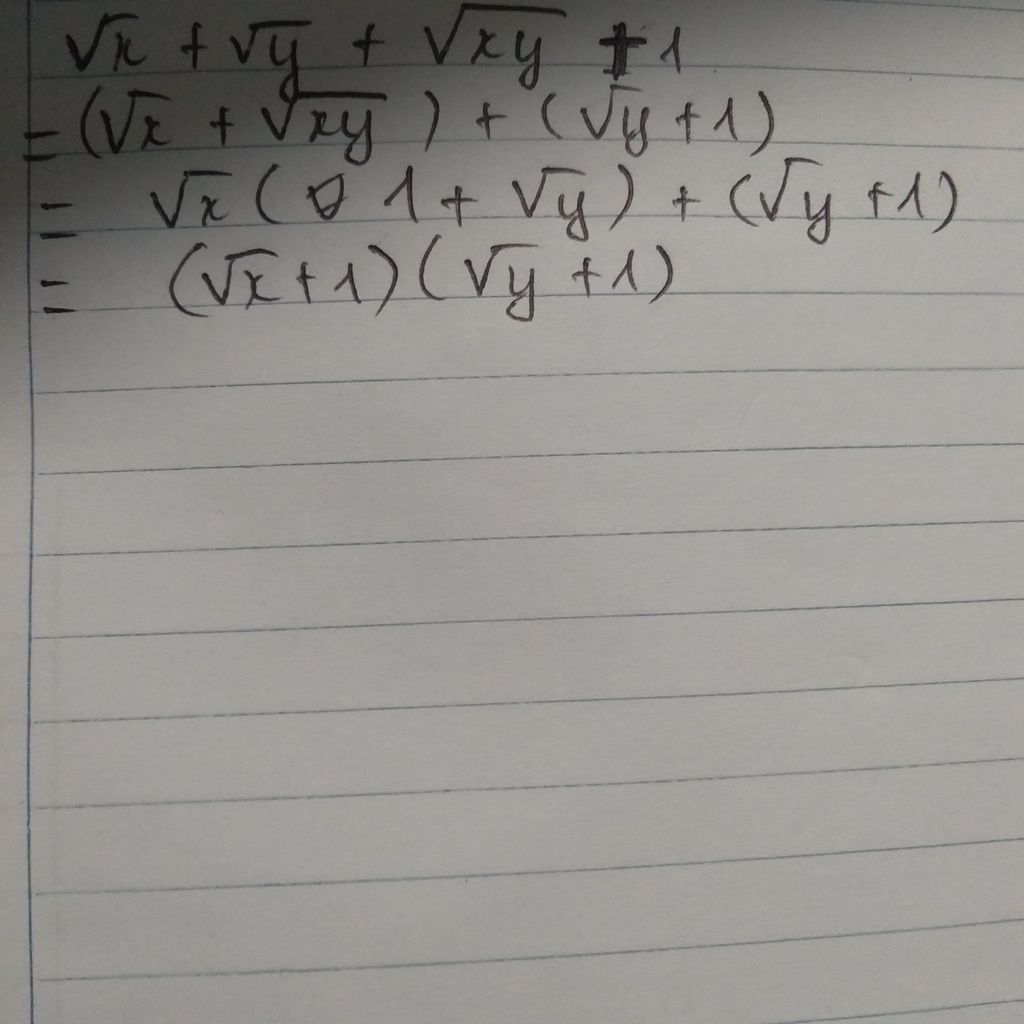 √x + √y + √xy + 1
= (√x + √xy) + (√y + 1)
= √x (1 + √y) + (√y + 1)
= (√x + 1)(√y + 1)